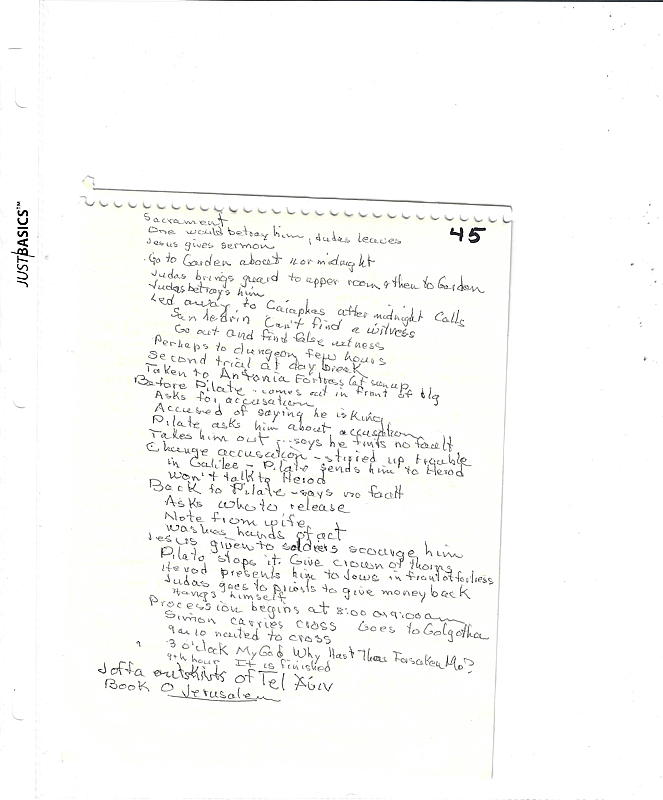 45
JUSTBASICS™
Sacrament
One would betray him, Judas leaves
Jesus gives sermon
Go to Garden about 11 or midnight
Judas brings guard to upper room & then to Garden
Judas betrays him
Led away to Caiaphas after midnight Calls
Sanhedrin Can't find a witness
Go out and find false witness
Perhaps to dungeon few hours
Second trial at day break
Taken to Antonia Fortress (at sunup
Before Pilate - comes out in front of blg
Asks for accusation
Accused of saying he is King
Pilate asks him about accusation
Takes him out - says he finds no fault
Change accusation - stirred up trouble
in Galilee - Pilate sends him to Herod
Won't talk to Herod
Back to Pilate - says no fault
Asks who to release
Note from wife
Washes hands of act
Jesus given to solders scourge him
Pilate stops it. Give crown of thorns
Herod presents him to Jews in front of fortress
Judas goes to priests to give money back
Hangs himself
Procession begins at 8:00 or 9:00 am
Simon carries cross Goes to Golgotha
9 or 10 nailed to cross
3 o'clock My God Why Hast Thou Forsaken Me?
9th hour It is finished
Joffa outskirts of Tel Aviv
Book O Jerusalem